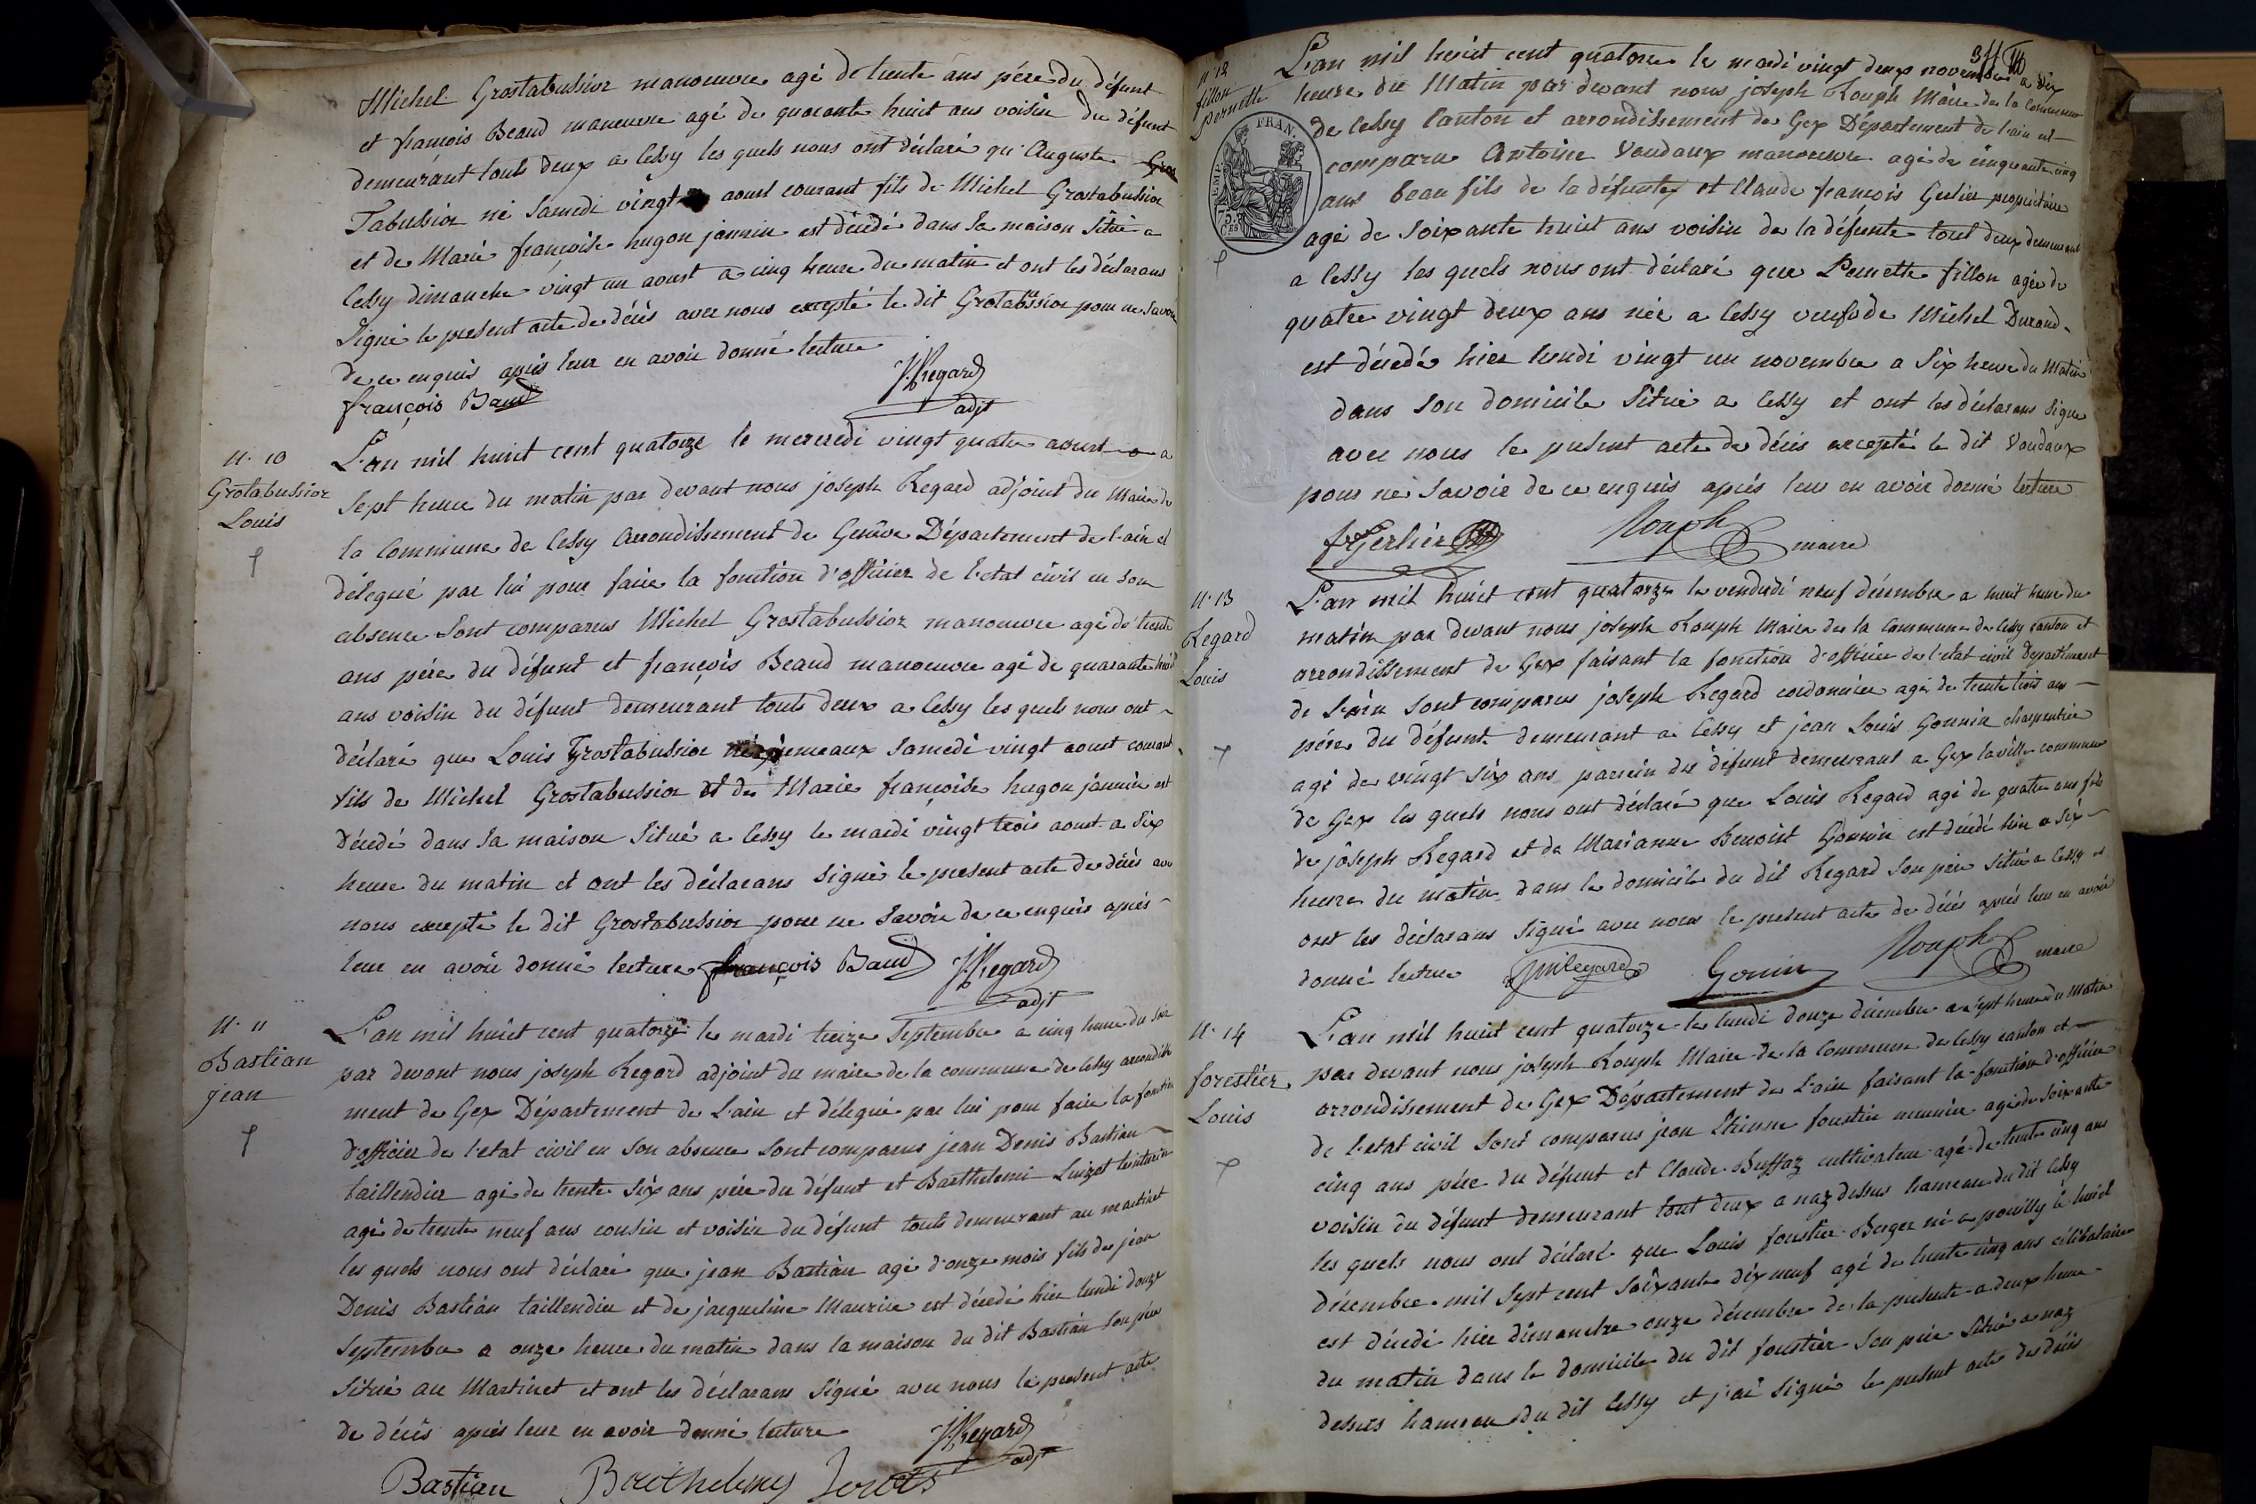 Michel Grostabussior manoeuvre agé de trente ans pére du défunt
et françois Beaud maneuvre agé de quarante huit ans voisin du défunt
demeurant touts deux a Cessy les quels nous ont déclaré qu'Auguste Gros
Tabussior né Samedi vingt aoust courant fils de Michel Grostabussior
et de Marie françoise hugon jannin est décédé dans sa maison Situé a
Cessy dimanche vingt un aoust a cinq heure du matin et ont les déclarans
Signé le present acte de décés avec nous excepté le dit Grotabussior pour ne Savoir
de ce enquis aprés leur en avoir donné lecture
françois Baud
J. Regard
adjt
N. 10
Grotabussior
Louis
L'an mil huit cent quatorze le mercredi vingt quatre aoust a
Sept heure du matin par devant nous joseph Regard adjoint du Maire de
la Commune de Cessy Arrondissement de Genêve Département de l'ain et
délegué par lui pour faire la fonction d'officier de l'etat civil en Son
absence Sont comparus Michel Grostabussior manoeuvre agé de trente
ans pére du défunt et françois Beaud manoeuvre agé de quarante huit
ans voisin du défunt demeurant touts deux a Cessy les quels nous ont
déclaré que Louis Grostabussior né jumeaux Samedi vingt aoust courant
fils de Michel Grostabussior et de Marie françoise hugon jannin est
décedé dans Sa maison Situé a Cessy le mardi vingt trois aoust a Six
heure du matin et ont les déclarans Signé le present acte de décés avec
nous excepté le dit Grostabussior pour ne Savoir de ce enquis aprés
leur en avoir donné lecture françois Baud J. Regard
adjt
N. 11
Bastian
jean
L'an mil huit cent quatorze le mardi treize Septembre a cinq heure du Soir
par devant nous joseph Regard adjoint du maire de la commune de Cessy arrondisse
ment de Gex Département de L'ain et délegué par lui pour faire la fonction
d'officier de l'etat civil en Son absence Sont comparus jean Denis Bastian
taillendier agé de trente Six ans pére du défunt et Barthelemi
agé de trente neuf ans cousin et voisin du défunt touts demeurant au martinet
les quels nous ont déclaré que jean Bastian agé d'onze mois fils de jean
Denis Bastian taillendier et de jacqueline Maurice est décedé hier lundi douze
Septembre a onze heure du matin dans la maison du dit Bastian Son pére
Situé au Martinet et ont les déclarans Signé avec nous le present acte
de décés aprés leur en avoir donné lecture
J. Regard
adjt
Bastian Barthelemy
N. 12
fillon
Pernette
L'an mil huit cent quatorze le mardi vingt deux novembre a dix
heure du Matin par devant nous joseph Rouph Maire de la Commune
de Cessy Canton et arrondissement de Gex Département de l'ain est
comparu Antoine Vaudaux manoeuvre agé de cinquante cinq
ans beau fils de la défunte et Claude françois Gerlier propriétaire
agé de Soixante huit ans voisin de la défunte tout deux demeurant
a Cessy les quels nous ont déclaré que Pernette fillon agée de
quatre vingt deux ans née a Cessy veufe de Michel Durand
est décedé hier lundi vingt un novembre a Six heure du Matin
dans Son domicile Situé a Cessy et ont les déclarans Signé
avec nous le present acte de décés excepté le dit Vaudaux
pour ne Savoir de ce enquis aprés leur en avoir donné lecture
Gerlier
Rouph maire
FRAN.
75
N. 13
Regard
Louis
L'an mil huit cent quatorze le vendredi neuf décembre a huit heure du
matin par devant nous joseph Rouph Maire de la Commune de Cessy canton et
arrondissement de Gex faisant la fonction d'officier de l'etat civil Département
de L'ain Sont comparus joseph Regard cordonnier agé de trente trois ans
pére du défunt demeurant a Cessy et jean Louis Gonnin charpentier
agé de vingt Six ans parrein du défunt demeurant a Gex la ville commune
de Gex les quels nous ont déclaré que Louis Regard agé de quatre ans fils
de joseph Regard et de Marianne Benoist Gonnin est décedé hier a Six
heure du matin dans le domicile du dit Regard Son pére Situé a Cessy et
ont les déclarans Signé avec nous le present acte de décés aprés leur en avoir
donné lecture Gonin Rouph maire
N. 14
forestier
Louis
L'an mil huit cent quatorze le lundi douze décembre a Sept heure du Matin
par devant nous joseph Rouph Maire de la Commune de Cessy canton et
arrondissement de Gex Département de L'ain faisant la fonction d'officier
de l'etat civil Sont comparus jean Etienne forestier meunier agé de Soixante
cinq ans pére du défunt et Claude Buffaz cultivateur agé de trente cinq ans
voisin du défunt demeurant tout deux a naz dessus hameau du dit Cessy
les quels nous ont déclaré que Louis forestier Berger né a pouilly le huit
décembre mil Sept cent Soixante dix neuf agé de trente cinq ans célibataire
est décedé hier dimanche onze décembre de la présente a deux heure
du matin dans le domicile du dit forestier Son pére Situé a naz
dessus hameau du dit Cessy et j'ai Signé le present acte de décés